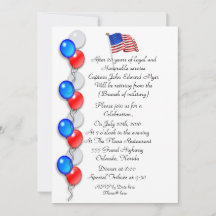 After 20 years of loyal and
Honorable service
Captain John Edward Myer
Will be retiring from the
(Branch of military)
Please join us for a
Celebration,
On July 20th, 2016
At 5 o'clock in the evening
At The Plaza Restaurant
555 Grand Highway
Orlando, Florida
Dinner at 7:00
Special Tribute at 8:30
RSVP by Date here